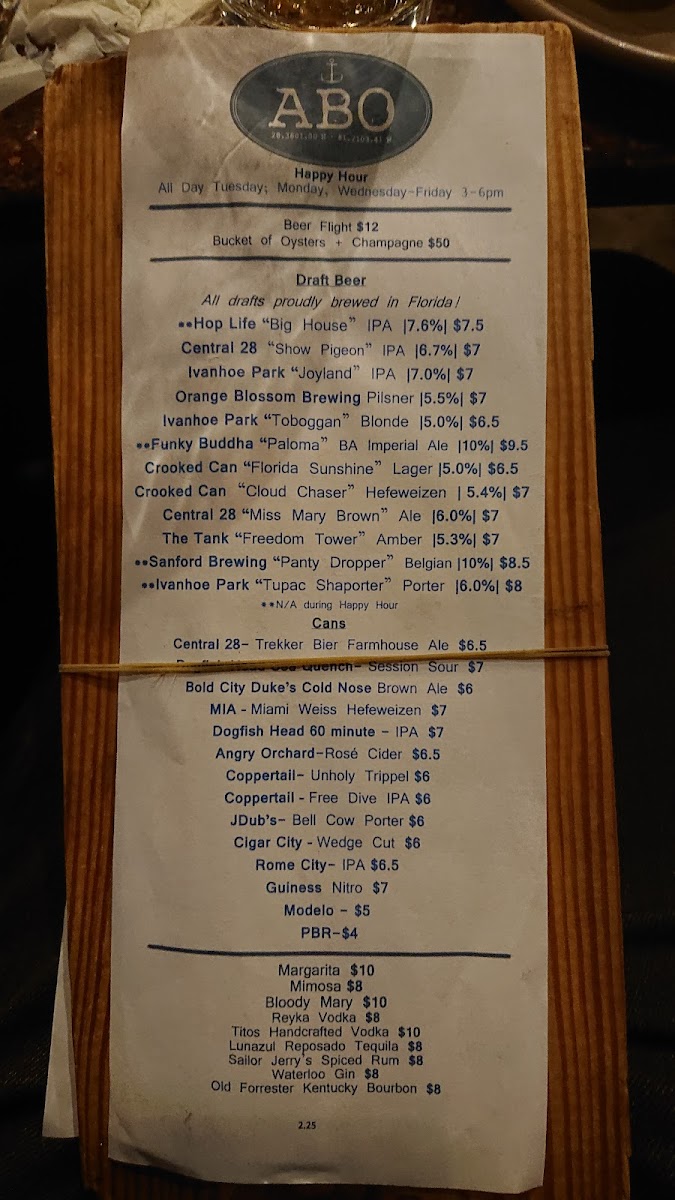 ABO
Happy Hour
All Day Tuesday; Monday, Wednesday-Friday 3-6pm
Beer Flight $12
Bucket of Oysters + Champagne $50
Draft Beer
All drafts proudly brewed in Florida!
**Hop Life "Big House" IPA |7.6%| $7.5
Central 28 "Show Pigeon" IPA |6.7%| $7
Ivanhoe Park "Joyland" IPA |7.0%| $7
Orange Blossom Brewing Pilsner |5.5%| $7
Ivanhoe Park "Toboggan" Blonde |5.0%| $6.5
**Funky Buddha "Paloma" BA Imperial Ale |10%| $9.5
Crooked Can "Florida Sunshine" Lager |5.0%| $6.5
Crooked Can "Cloud Chaser" Hefeweizen | 5.4%| $7
Central 28 "Miss Mary Brown" Ale |6.0%| $7
The Tank "Freedom Tower" Amber |5.3%| $7
**Sanford Brewing "Panty Dropper" Belgian |10%| $8.5
**Ivanhoe Park "Tupac Shaporter" Porter |6.0%| $8
**N/A during Happy Hour
Cans
Central 28- Trekker Bier Farmhouse Ale $6.5
Quench- Session Sour $7
Bold City Duke's Cold Nose Brown Ale $6
MIA - Miami Weiss Hefeweizen $7
Dogfish Head 60 minute - IPA $7
Angry Orchard-Rosé Cider $6.5
Coppertail- Unholy Trippel $6
Coppertail - Free Dive IPA $6
JDub's- Bell Cow Porter $6
Cigar City - Wedge Cut $6
Rome City- IPA $6.5
Guiness Nitro $7
Modelo - $5
PBR-$4
Margarita $10
Mimosa $8
Bloody Mary $10
Reyka Vodka $8
Titos Handcrafted Vodka $10
Lunazul Reposado Tequila $8
Sailor Jerry's Spiced Rum $8
Waterloo Gin $8
Old Forrester Kentucky Bourbon $8
2.25